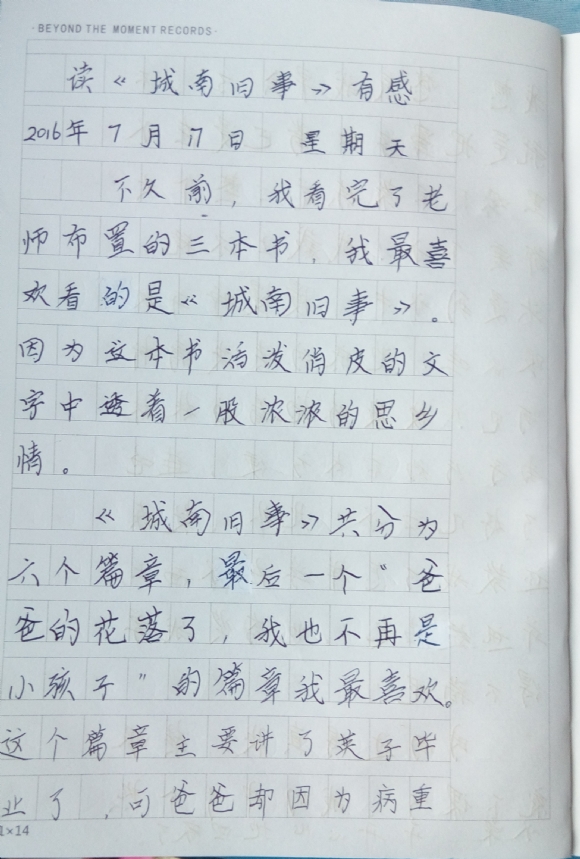 ·BEYOND THE MOMENT RECORDS·
读《城南旧事》有感
2016年7月17日 星期天
不久前，我看完了老
师布置的三本书，我最喜
欢看的是《城南旧事》。
因为这本书活泼俏皮的文
字中透着一股浓浓的思乡
情。
《城南旧事》共分为
六个篇章，最后一个“爸
爸的花落了，我也不再是
小孩子”的篇章我最喜欢。
这个篇章主要讲了英子毕
业了，可爸爸却因为病重
1×14